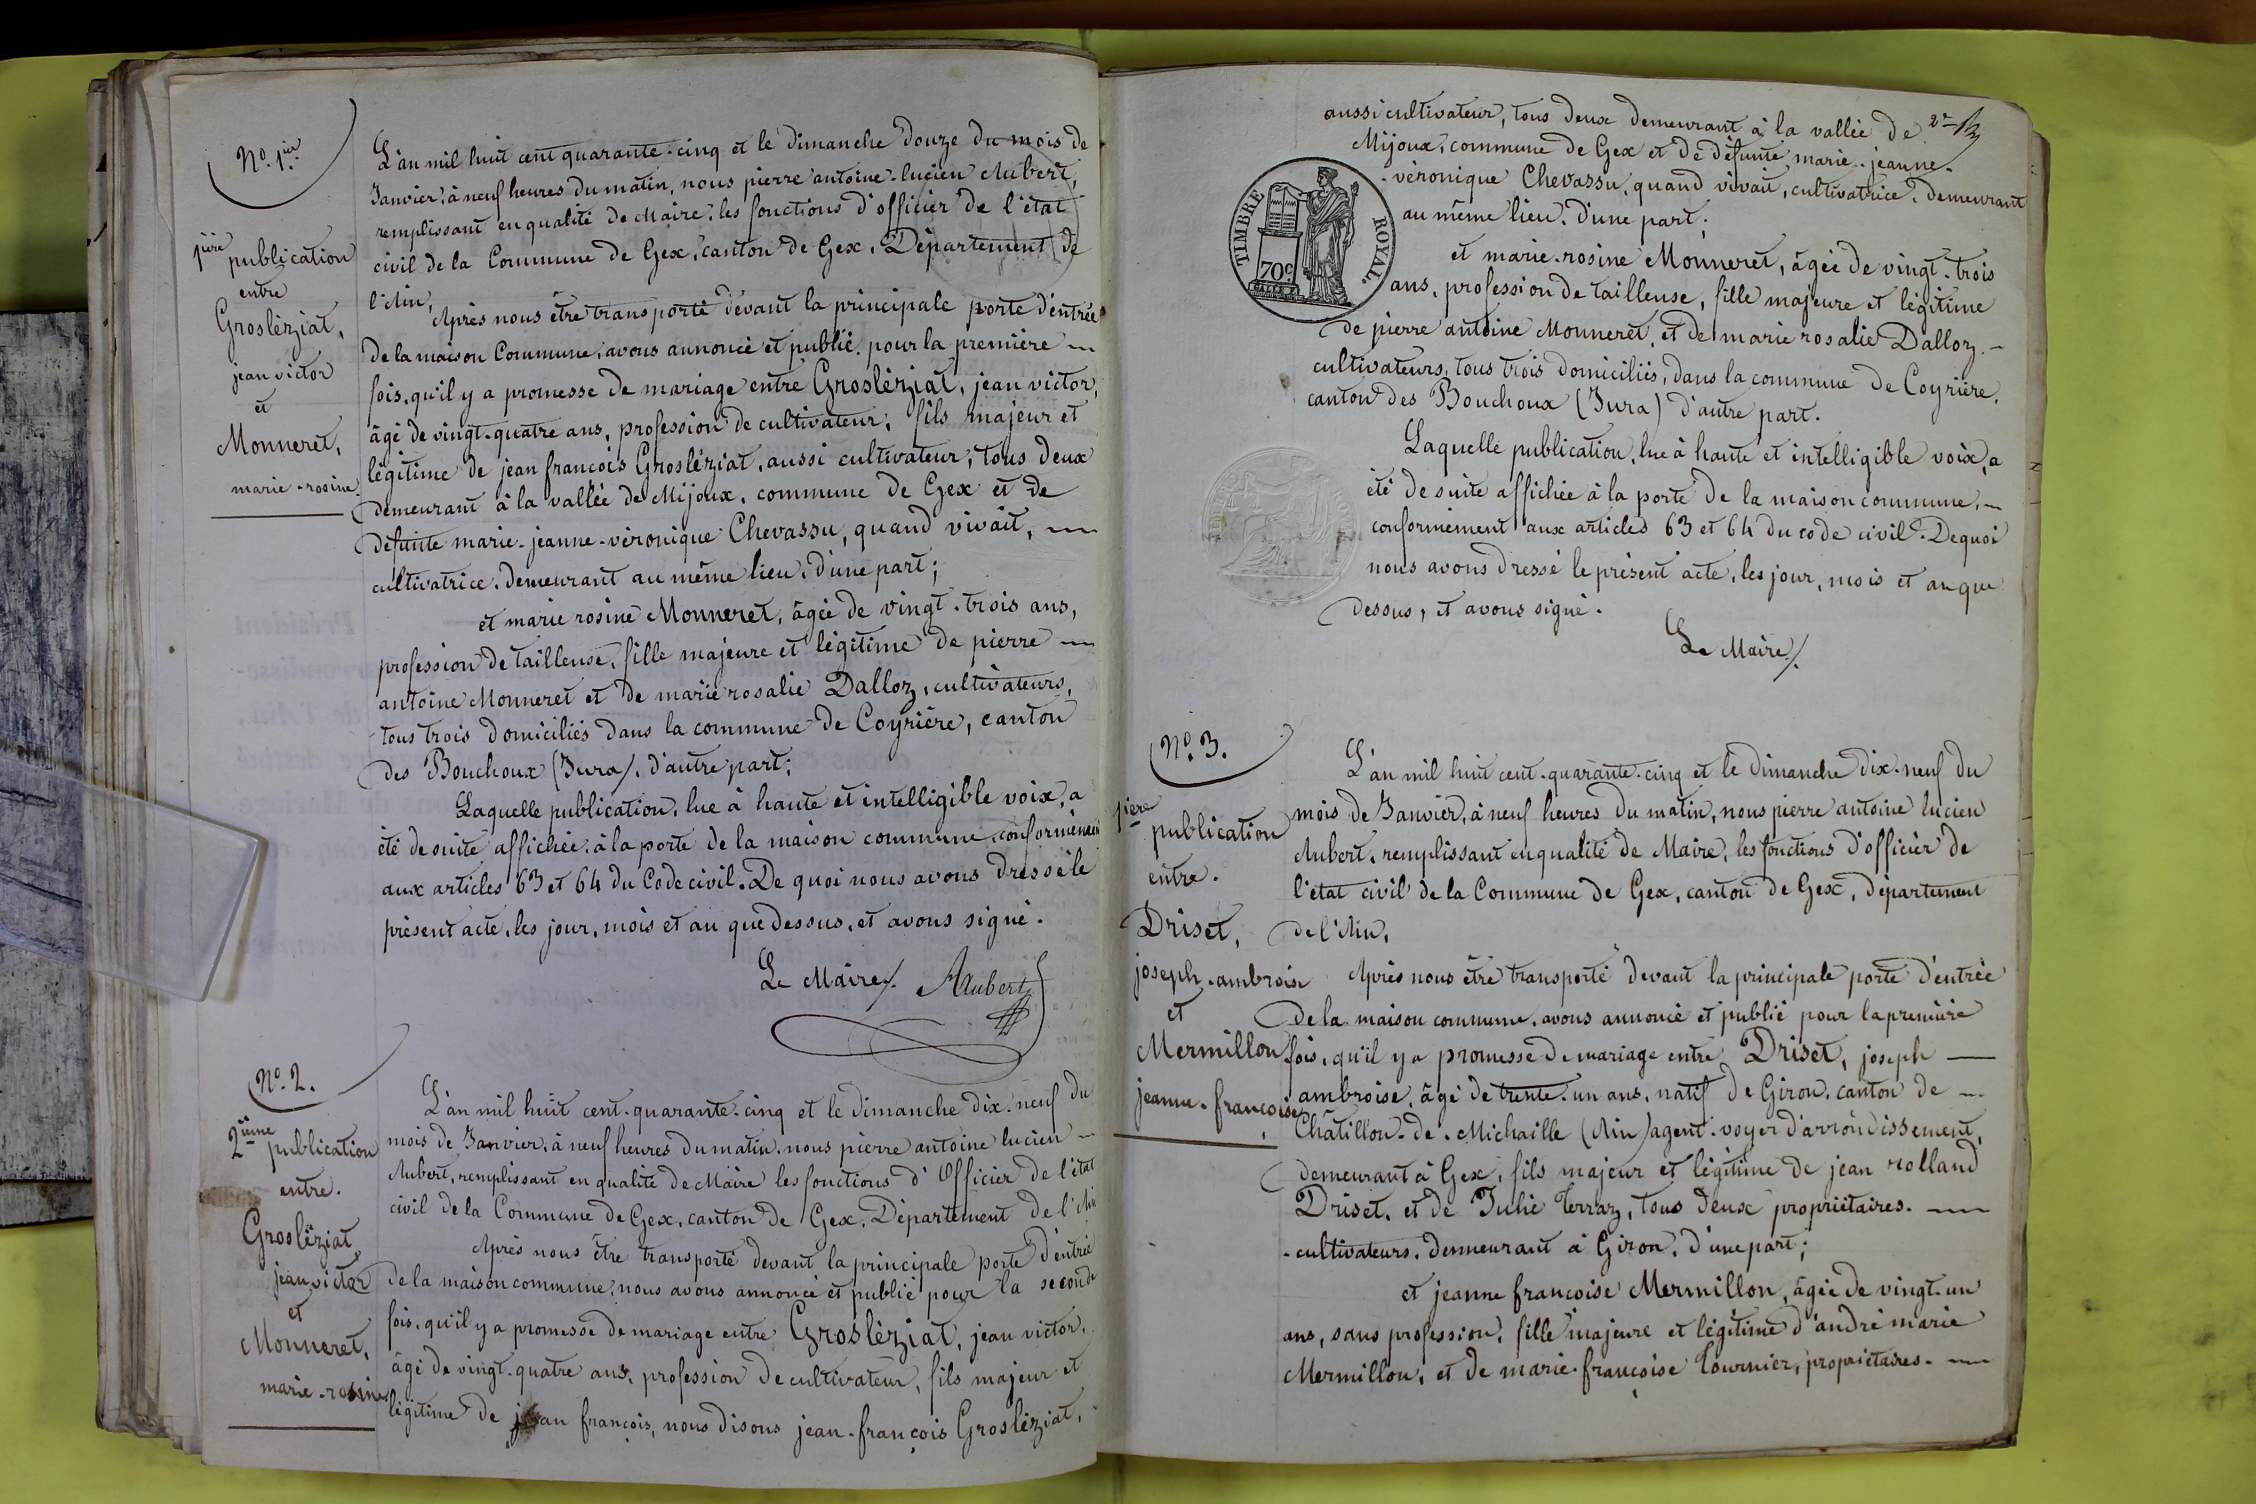 N.o 1.ier
1ière publication
entre
Grosléziat,
jean victor
et
Monneret,
marie-rosine.
L'an mil huit cent quarante-cinq et le dimanche douze du mois de
Janvier, à neuf heures du matin, nous pierre antoine-lucien Aubert,
remplissant en qualité de Maire, les fonctions d'officier de l'état
civil de la Commune de Gex, canton de Gex, Département de
l'Ain,
Après nous être transporté devant la principale porte d'entrée
de la maison Commune, avons annoncé et publié pour la première
fois, qu'il y a promesse de mariage entre Grosléziat, jean victor,
âgé de vingt-quatre ans, profession de cultivateur, fils majeur et
légitime de jean francois Grosléziat, aussi cultivateur, tous deux
demeurant à la vallée de Mijoux, commune de Gex et de
défunte marie-jeanne-véronique Chevassu, quand vivait,
cultivatrice, demeurant au même lieu, d'une part;
et marie rosine Monneret, âgée de vingt-trois ans,
profession de tailleuse, fille majeure et légitime de pierre
antoine Monneret et de marie rosalie Dalloz, cultivateurs,
tous trois domiciliés dans la commune de Coyrière, canton
des Bouchoux (Jura), d'autre part;
Laquelle publication, lue à haute et intelligible voix, a
été de suite affichée à la porte de la maison commune, conformément
aux articles 63 et 64 du Code civil. De quoi nous avons dressé le
présent acte, les jour, mois et an que dessus, et avons signé.
Le Maire/. Aubert
N.o 2.
2ième publication
entre.
Grosléziat,
jean victor
et
Monneret,
marie-rosine
L'an mil huit cent-quarante-cinq et le dimanche dix-neuf du
mois de Janvier, à neuf heures du matin, nous pierre antoine lucien
Aubert, remplissant en qualité de Maire les fonctions d'Officier de l'état
civil de la Commune de Gex, canton de Gex, Département de l'Ain
Après nous être transporté devant la principale porte d'entrée
de la maison commune, nous avons annoncé et publié pour la seconde
fois, qu'il y a promesse de mariage entre Grosléziat, jean victor,
âgé de vingt-quatre ans, profession de cultivateur, fils majeur et
légitime de jean françois, nous disons jean-françois Grosléziat,
2e
aussi cultivateur, tous deux demeurant à la vallée de
Mijoux, commune de Gex et de défunte marie-jeanne-
-véronique Chevassu, quand vivait, cultivatrice, demeurant
au même lieu, d'une part;
TIMBRE ROYAL.
70c
et marie-rosine Monneret, âgée de vingt-trois
ans, profession de tailleuse, fille majeure et légitime
de pierre antoine Monneret, et de marie rosalie Dalloz,
cultivateurs, tous trois domiciliés, dans la commune de Coyrière,
canton des Bouchoux (Jura) d'autre part.
Laquelle publication, lue à haute et intelligible voix, a
été de suite affichée à la porte de la maison commune,
conformément aux articles 63 et 64 du code civil. De quoi
nous avons dressé le présent acte, les jour, mois et an que
dessus, et avons signé.
Le Maire/.
N.o 3.
1ière
publication
entre.
Driset,
joseph-ambroise
et
Mermillon
jeanne-françoise
L'an mil huit cent-quarante-cinq et le dimanche dix-neuf du
mois de Janvier, à neuf heures du matin, nous pierre antoine lucien
Aubert, remplissant en qualité de Maire, les fonctions d'officier de
l'état civil de la Commune de Gex, canton de Gex, département
de l'Ain,
Après nous être transporté devant la principale porte d'entrée
de la maison commune, avons annoncé et publié pour la première
fois, qu'il y a promesse de mariage entre Driset, joseph
ambroise, âgé de trente-un ans, natif de Giron, canton de
Châtillon-de-Michaille (Ain) agent-voyer d'arrondissement,
demeurant à Gex, fils majeur et légitime de jean rolland
Driset, et de Julie Terraz, tous deux propriétaires-
-cultivateurs, demeurant à Giron, d'une part;
et jeanne françoise Mermillon, âgée de vingt-un
ans, sans profession, fille majeure et légitime d'andré marie
Mermillon, et de marie-françoise Tournier, propriétaires-